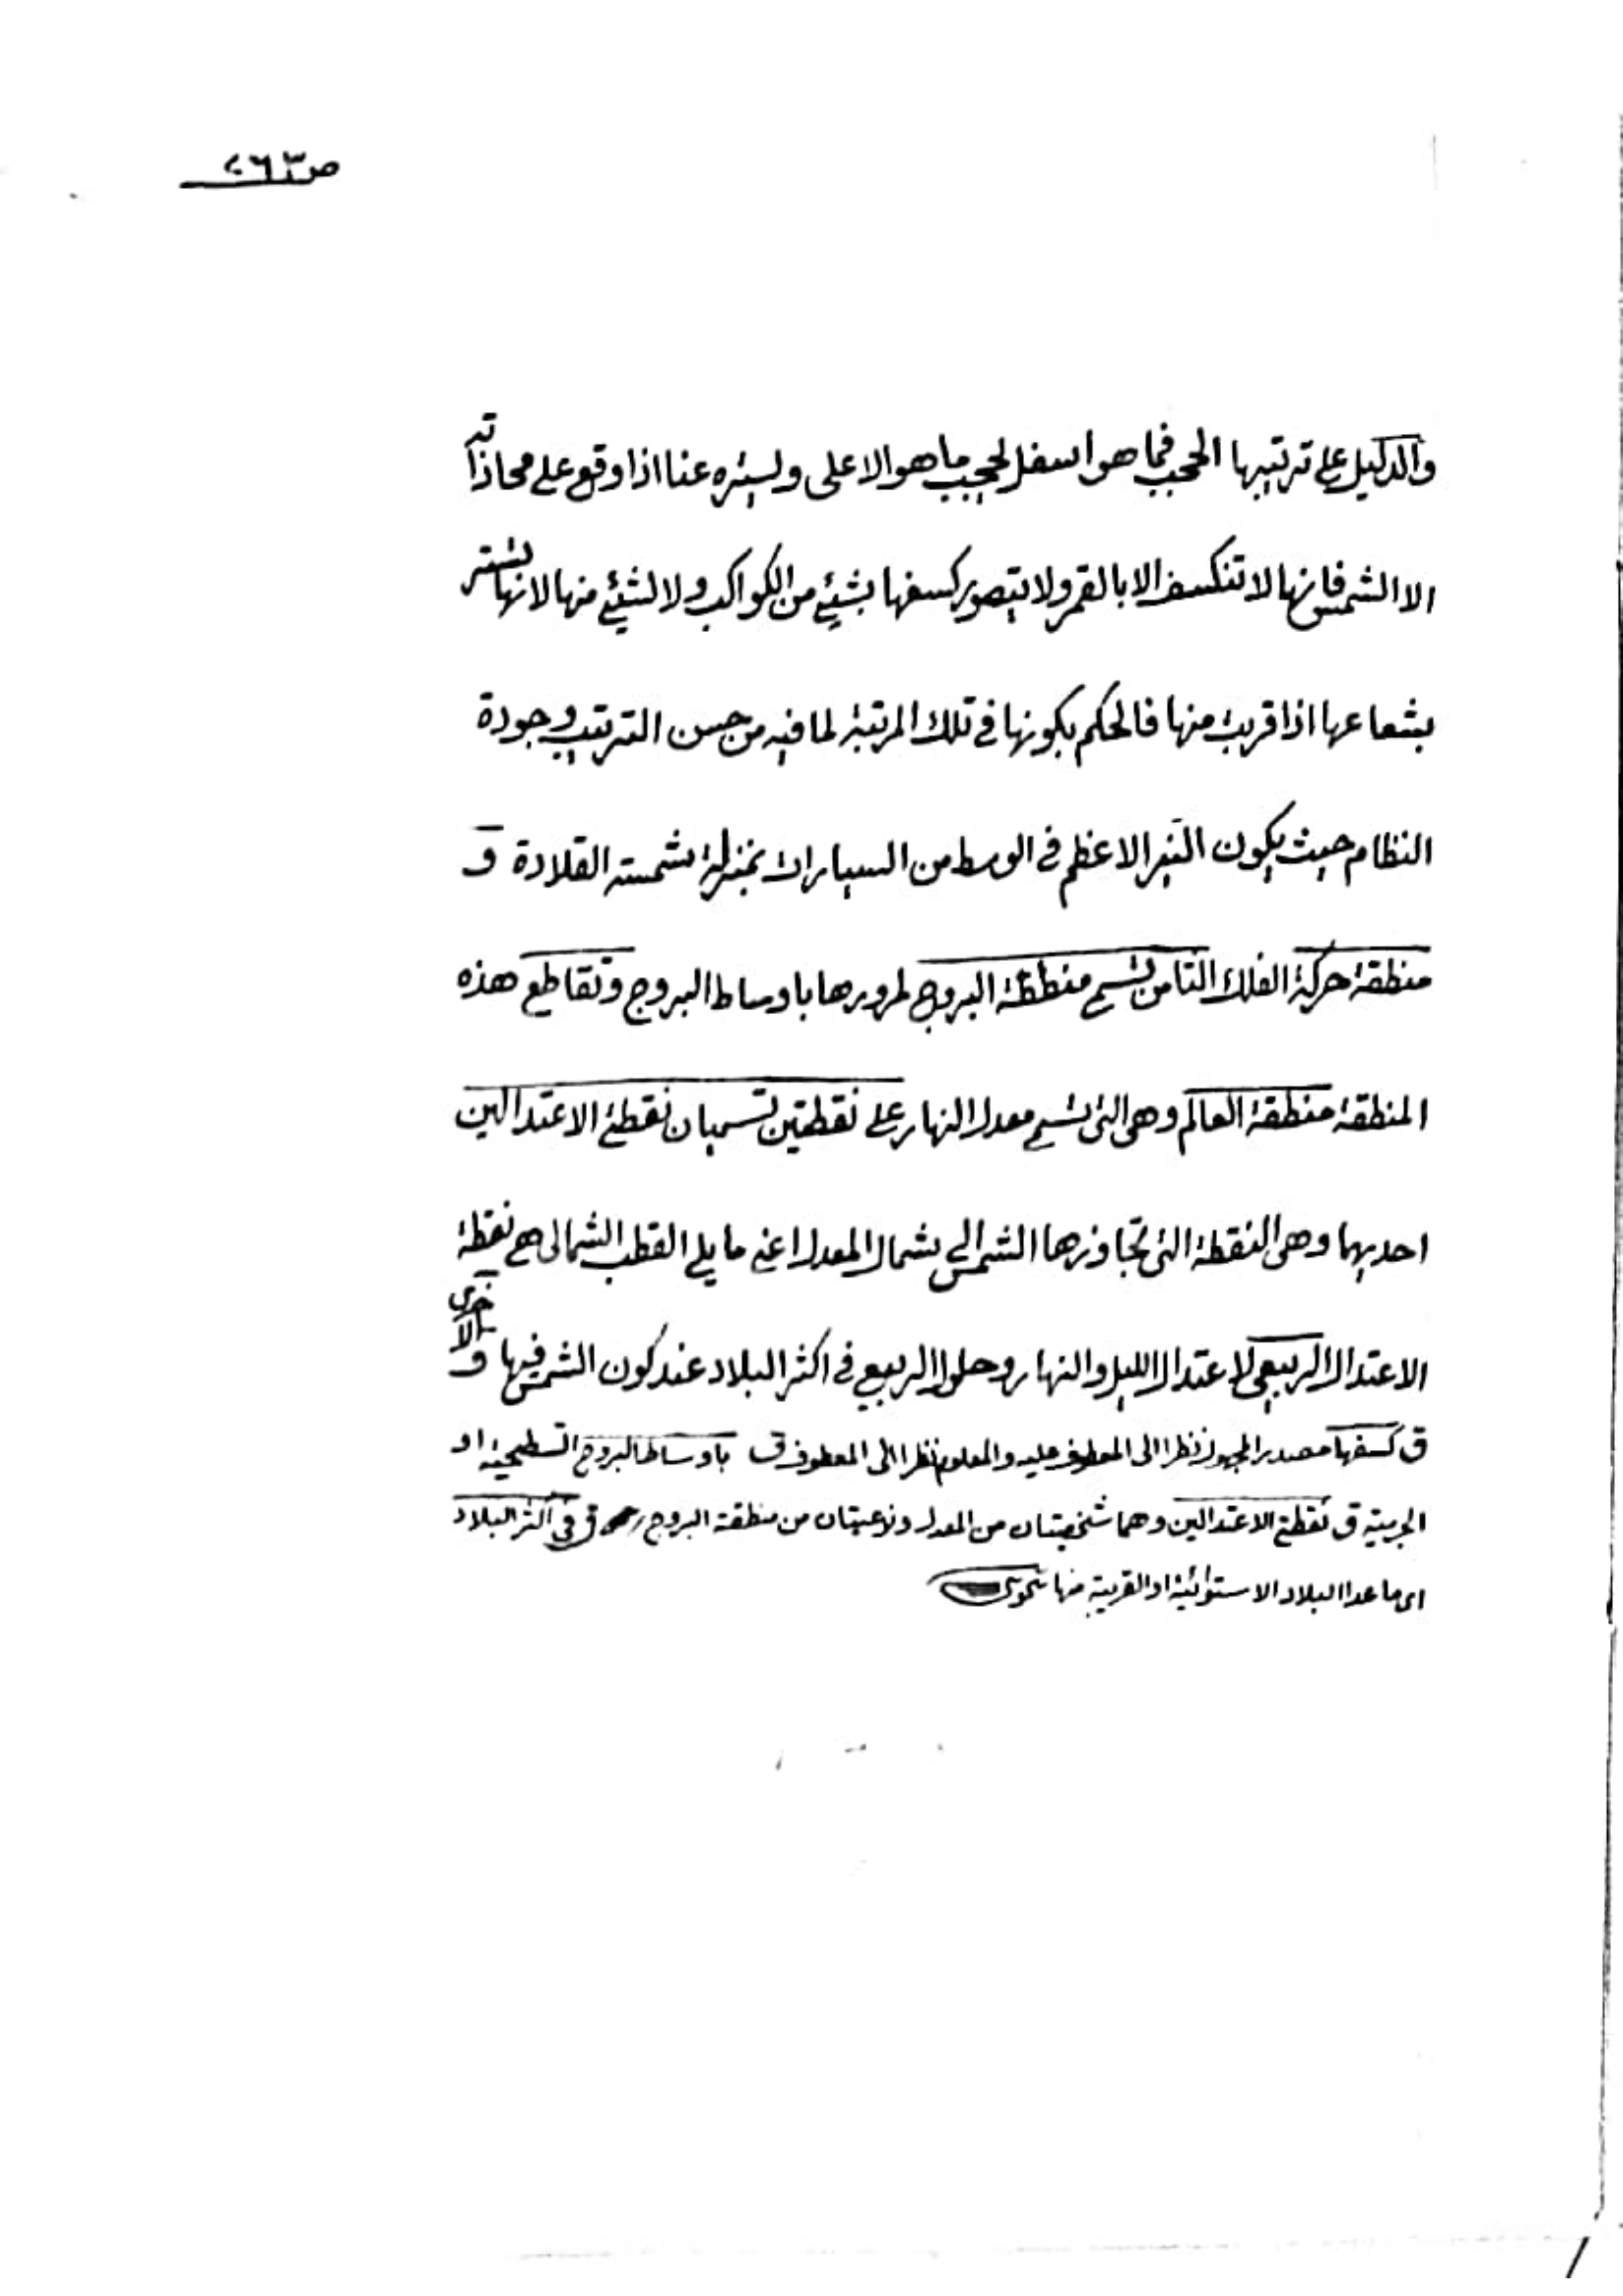 ص ٢٦٣
والدليل على ترتيبها الحجب فما هو اسفل يحجب ما هو الاعلى ويستره عنا اذا وقع على محاذاته
الا الشمس فانها لا تنكسف الا بالقمر ولا يتصور كسفها بشيئ من الكواكب ولا لشيئ منها لانها تستتر
بشعاعها اذا قربت منها فالحكم بكونها في تلك المرتبة لما فيه من حسن الترتيب وجودة
النظام حيث يكون النير الاعظم في الوسط من السيارات بمنزلة شمسة القلادة و
منطقة حركة الفلك الثامن تسمى منطقة البروج لمرورها باوساط البروج وتقاطع هذه
المنطقة منطقة العالم وهي التى تسمى معدل النهار على نقطتين تسميان نقطتى الاعتدالين
احديهما وهي النقطة التى تجاوزها الشمس الى شمال المعدل اعني ما يلي القطب الشمالى هي نقطة
الاعتدال الربيعي لاعتدال الليل والنهار وحلول الربيع في اكثر البلاد عند كون الشمس فيها والاخرى
ق كسفها مصدر المجهول نظرا الى المعطوف عليه والمعلوم نظرا الى المعطوف ق باوساط البروج السطحية او
الجرمية ق نقطتي الاعتدالين وهما شخصيتان من المعدل ونوعيتان من منطقة البروج ق في اكثر البلاد
اى ما عدا البلاد الاستوائية او القريبة منها